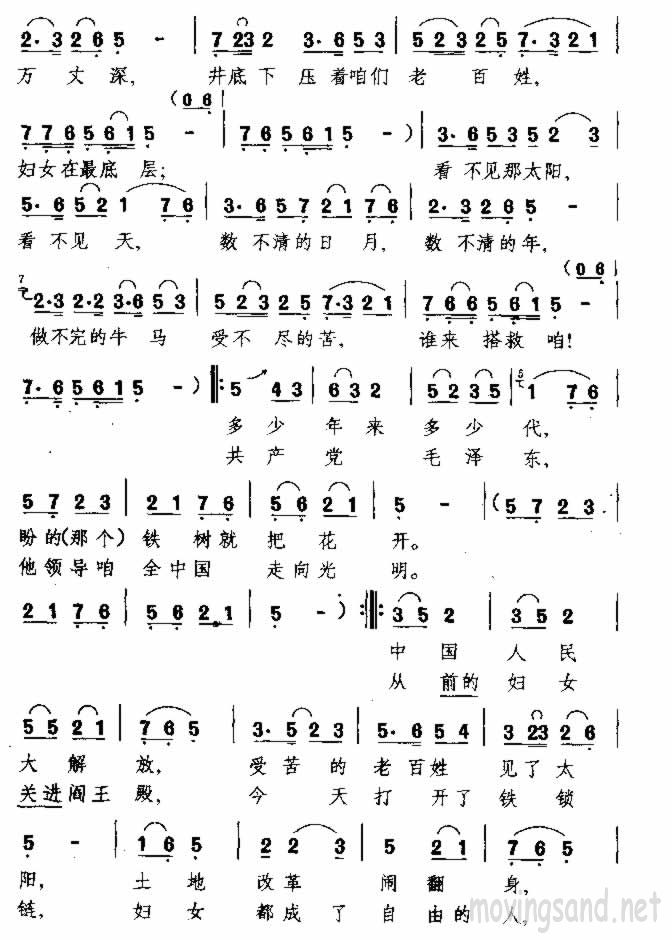 2·3 2 6 5 - | 7 23 2 3·6 5 3 | 5 2 3 2 5 7·3 2 1 |
万 丈 深, 井底下 压着咱们 老 百 姓,
(0 6
7 7 6 5 6 1 5 - | 7 6 5 6 1 5 - ) | 3·6 5 3 5 2 2 3 |
妇女在最底 层; 看 不见那太阳,
5·6 5 2 1 7 6 | 3·6 5 7 2 1 7 6 | 2·3 2 6 5 - |
看 不见 天, 数 不清的日 月, 数 不清的年,
(0 6
7 2·3 2·2 3·6 5 3 | 5 2 3 2 5 7·3 2 1 | 7 6 6 5 6 1 5 - |
做不完的牛 马 受不 尽的苦, 谁来 搭救 咱!
7·6 5 6 1 5 - ) ‖: 5 4 3 | 6 3 2 | 5 2 3 5 | 1 7 6 |
多少 年来 多少 代,
共产 党 毛泽 东,
5 7 2 3 | 2 1 7 6 | 5 6 2 1 | 5 - | (5 7 2 3 |
盼的(那个) 铁 树就 把 花 开。
他领导咱 全中国 走向光 明。
2 1 7 6 | 5 6 2 1 | 5 - ) :‖: 3 5 2 | 3 5 2 |
中 国 人 民
从 前的 妇 女
5 5 2 1 | 7 6 5 | 3·5 2 3 | 5·6 5 4 | 3 23 2 6 |
大 解 放, 受苦 的 老百姓 见了 太
关进阎王 殿, 今 天打 开了 铁 锁
5 - | 1 6 5 | 2 2 3 | 5 2 1 | 7 6 5 |
阳, 土 地 改革 闹 翻 身,
链, 妇 女 都成 了 自 由的 人,
movingsand.net